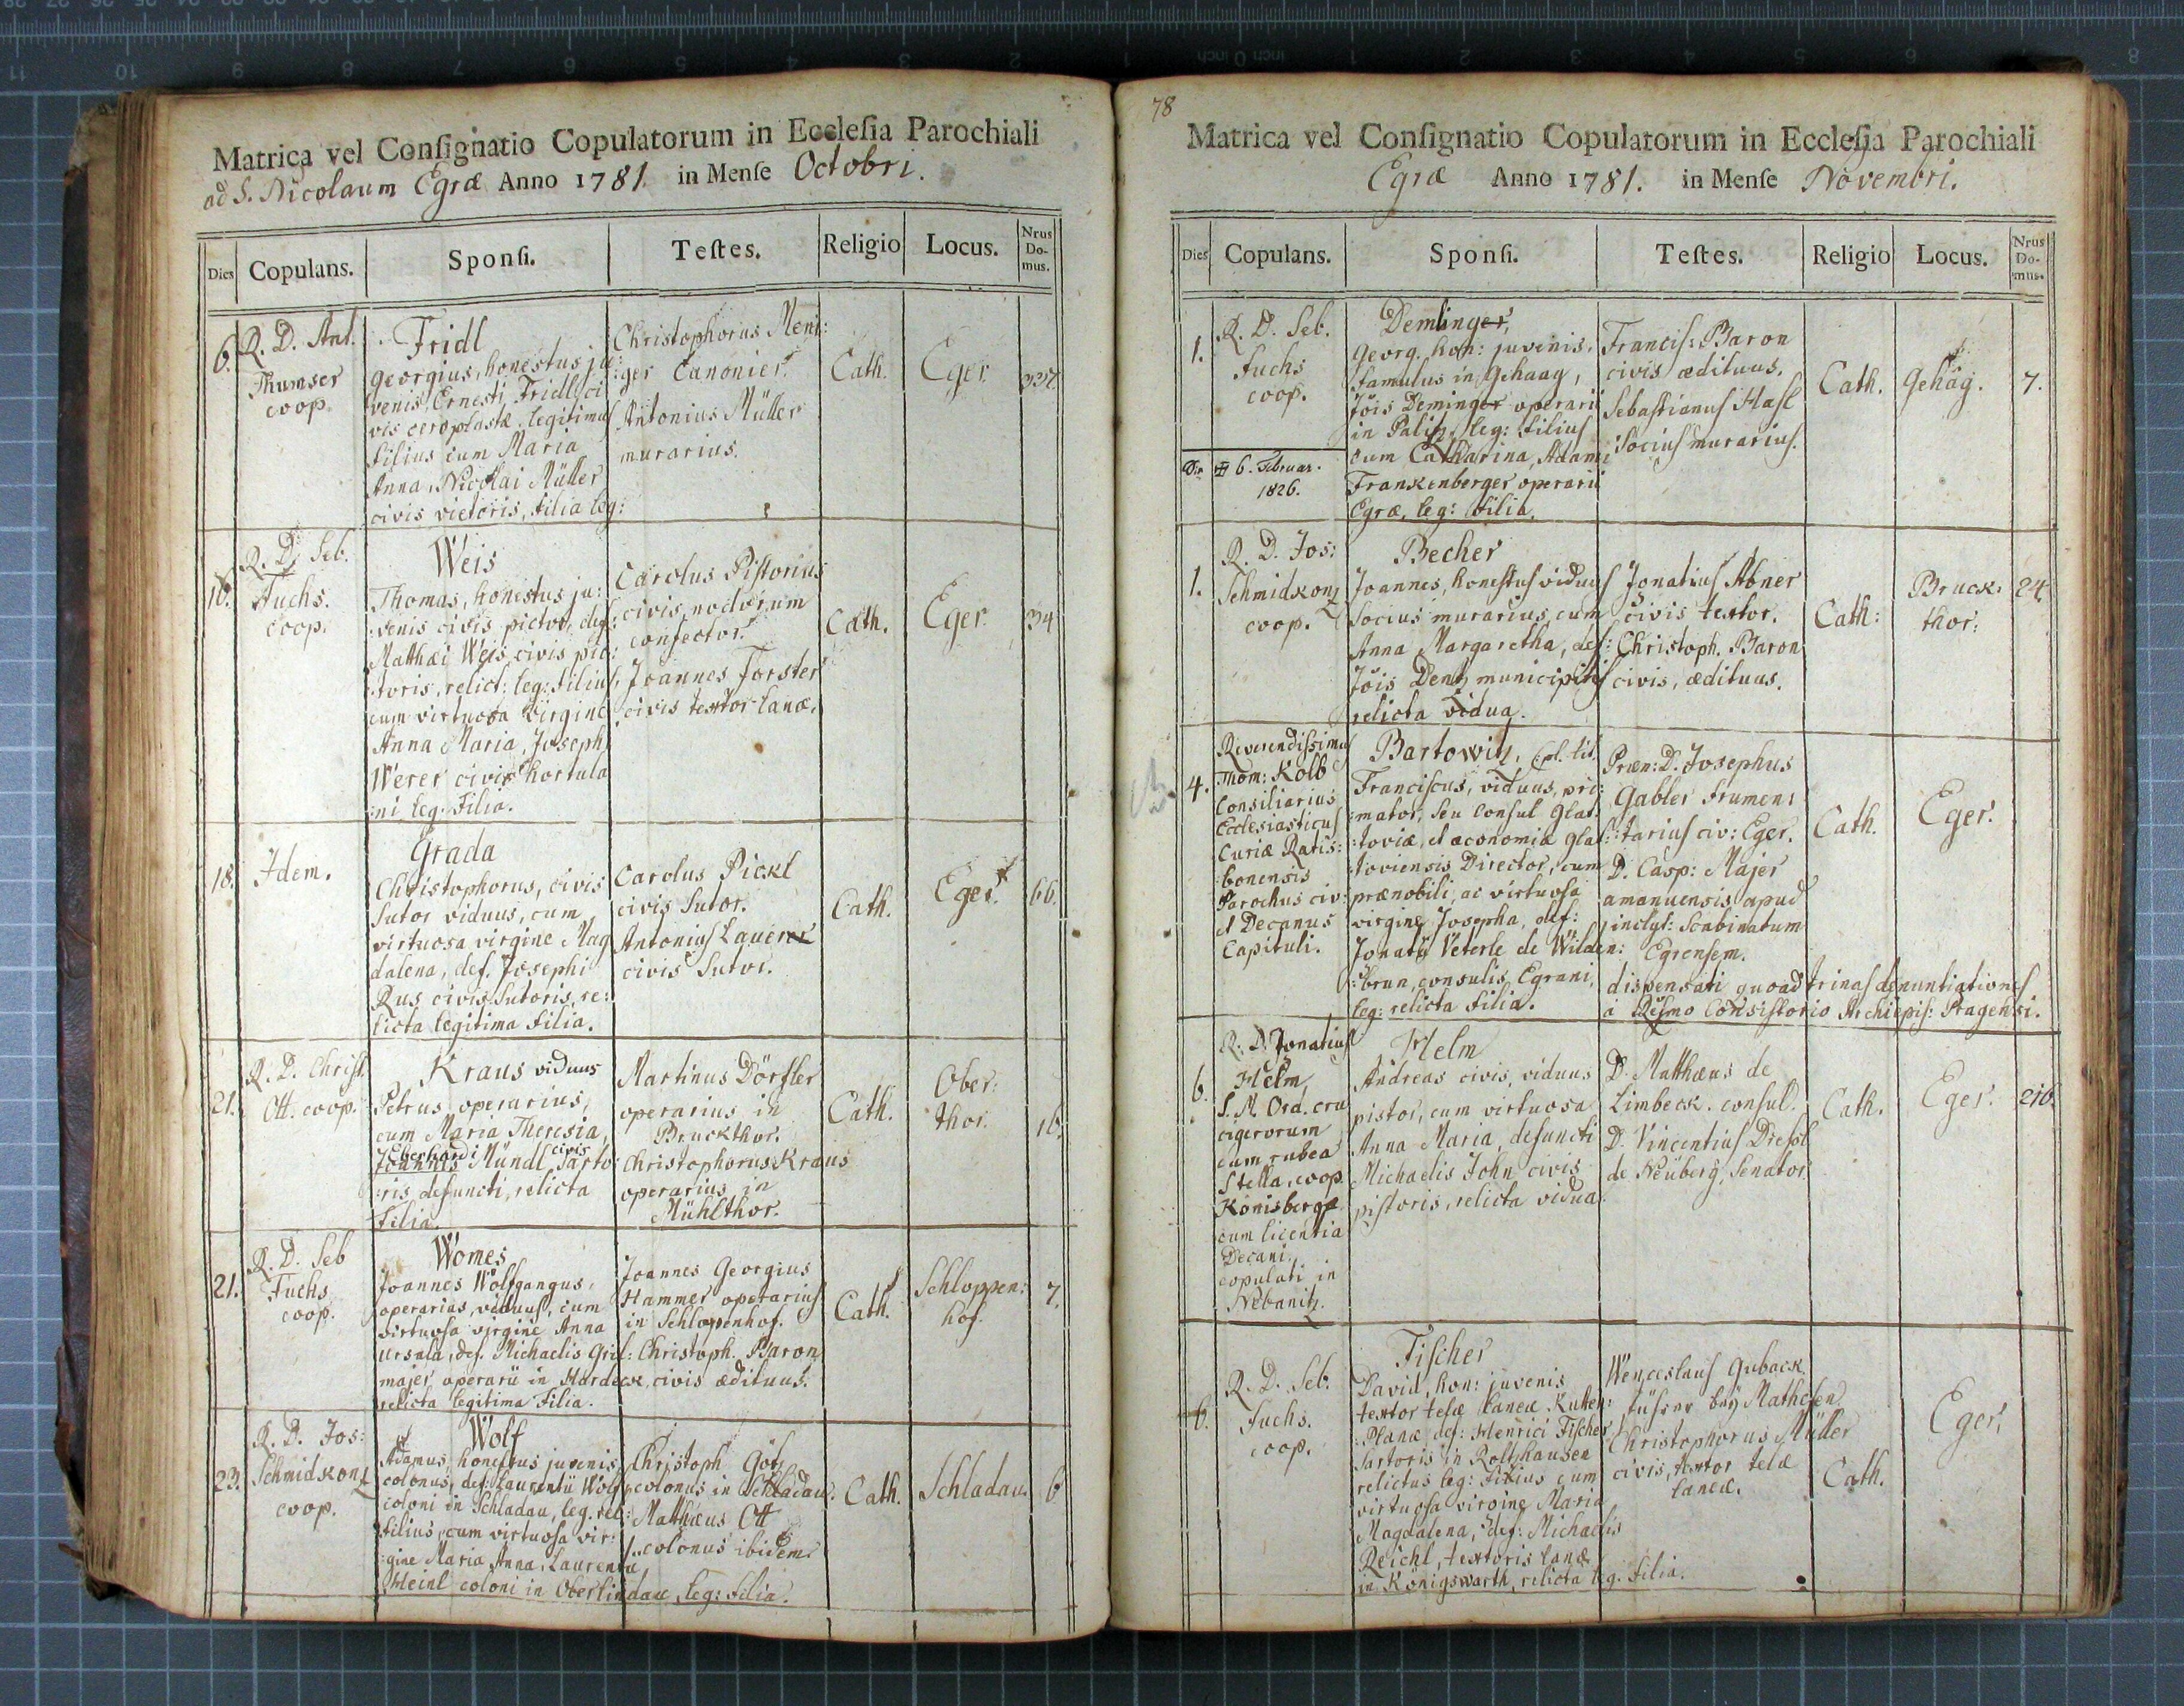 Matrica vel Conſignatio Copulatorum in Eccleſia Parochiali
ad S. Nicolaum Egræ Anno 1781. in Menſe Octobri.
Dies Copulans. Sponſi. Teſtes. Religio Locus. Nrus Do-mus.
6.
R. D. Ant.
Thumser
coop.
Fridl
Georgius, honestus ju:
venis, Ernesti Fridl ci
vis ceroplastæ, legitimus
filius cum Maria
Anna, Nicolai Müller
civis vietoris, filia leg:
Christophorus Meni:
:ger Canonier.
Antonius Müller
murarius.
Cath.
Eger.
R. D. Seb.
Fuchs.
coop.
Weis
Thomas, honestus ju:
:venis civis pictor, def:
Matthæi Weis civis pic:
:toris, relict: leg: filius,
cum virtuosa virgine
Anna Maria, Joseph
Werer civis hortula
:ni leg. filia.
Carolus Pistorius
civis, nodorum
confector.
Joannes Forster
civis textor lanæ.
Cath.
Eger.
34
18.
Idem.
Grada
Christophorus, civis
sutor viduus, cum
virtuosa virgine Mag
dalena, def. Josephi
Rus civis sutoris, re:
licta legitima filia.
Carolus Pickl
civis sutor.
Antonius Lauerer
civis sutor.
Cath.
Eger.
66.
21.
R. D. Christ.
Ott. coop.
Kraus viduus
Petrus operarius,
cum Maria Theresia,
Eberhardi civis
Joannis Mündl sarto:
:ris defuncti, relicta
filia.
Martinus Dörfler
operarius in
Bruckthor.
Christophorus Kraus
operarius in
Mühlthor.
Cath.
Ober:
thor.
16.
21.
R. D. Seb
Fuchs
coop.
Womes
Joannes Wolfgangus,
operarius, viduus, cum
virtuosa virgine Anna
Ursula, def. Michaelis Gril:
majer operarii in Hardeck
relicta legitima filia.
Joannes Georgius
Hammer operarius
in Schloppenhof.
Christoph. Baron
civis ædituus.
Cath.
Schloppen:
hof.
7.
23.
R. D. Jos:
Schmidkonz
coop.
Wolf
Adamus, honestus juvenis,
colonus, def: Laurentii Wolf
coloni in Schladau, leg. rel:
filius, cum virtuosa vir:
:gine Maria Anna, Laurentii
Heinl coloni in Oberlindau, leg: filia.
Christoph Götz
colonus in Schladau.
Matthæus Ott
colonus ibidem.
Cath.
Schladau.
6
78
Matrica vel Conſignatio Copulatorum in Eccleſia Parochiali
Egræ Anno 1781. in Menſe Novembri.
Dies Copulans. Sponſi. Teſtes. Religio Locus. Nrus Do-mus.
1.
R. D. Seb.
Fuchs
coop.
Die 6. Februar.
1826.
Demlinger,
Georg, hon: juvenis,
famulus in Gehaag,
Jöis Deminger operarii
in Paliz, leg: filius
cum Catharina, Adami
Frankenberger operarii
Egræ, leg: filia.
Francis: Baron
civis ædituus.
Sebastianus Hasl
socius murarius.
Cath.
Gehäg.
7.
1.
R. D. Jos:
Schmidkonz
coop.
Becher
Joannes, honestus viduus
socius murarius, cum
Anna Margaretha, def:
Jöis Denz municipitis
relicta vidua.
Ignatius Abner
civis textor.
Christoph. Baron
civis, ædituus.
Cath:
Bruck:
thor:
24.
4.
Reverendissimus
Thom: Kolb
Consiliarius
Ecclesiasticus
Curiæ Ratis:
:bonensis
Parochus civ:
et Decanus
Capituli.
Bartowiz, (pl. tit.
Franciscus, viduus, pri:
:mator, seu consul Glat:
:toviæ, et æconomiæ Glat:
:toviensis Director, cum
prænobili, ac virtuosa
virgine Josepha, def:
Ignatii Veterle de Wilden:
:brun, consulis Egrani,
leg: relicta filia.
Præn: D. Josephus
Gabler frumen:
:tarius civ: Eger.
D. Casp: Majer
amanuensis apud
inclyt: Scabinatum
Egrensem.
dispensati quoad trinas denuntiationes
à Rssmo Consistorio Archiepis: Pragensi.
Cath.
Eger.
6.
R. D. Ignatius
Helm,
S. M. Ord. cru
cigerorum
cum rubea
Stella, coop.
Königsbergæ
cum licentia
Decani,
copulati in
Nebaniz.
Helm
Andreas civis, viduus
pistor, cum virtuosa
Anna Maria, defuncti
Michaelis John civis
pistoris, relicta vidua.
D. Matthæus de
Limbeck. consul.
D. Vincentius Diessl
de Neuberg, Senator.
Cath.
Eger.
216.
6.
R. D. Seb.
Fuchs.
coop.
Fischer
David, hon: juvenis
textor telæ laneæ Kutten:
:Planæ def: Henrici Fischer
sartoris in Rolzhausen
relictus leg: filius cum
virtuosa virgine Maria
Magdalena, def: Michaelis
Reichl, textoris lanæ
in Königswarth, relicta leg. filia.
Wenceslaus Guback
Christophorus Müller
civis, textor telæ
laneæ.
Cath.
Eger.